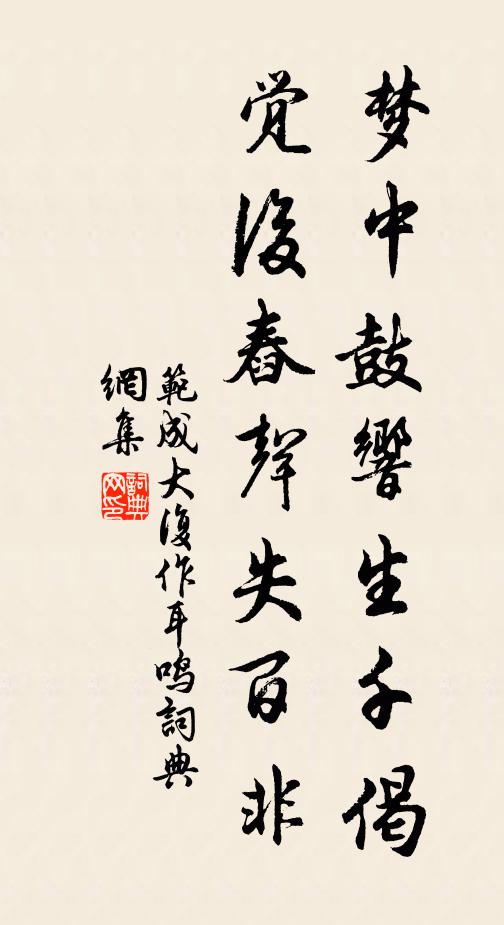 梦中鼓響生千偈
覚後舂聲失百非
範成大復作耳鸣詞典
網集
詞典
网印